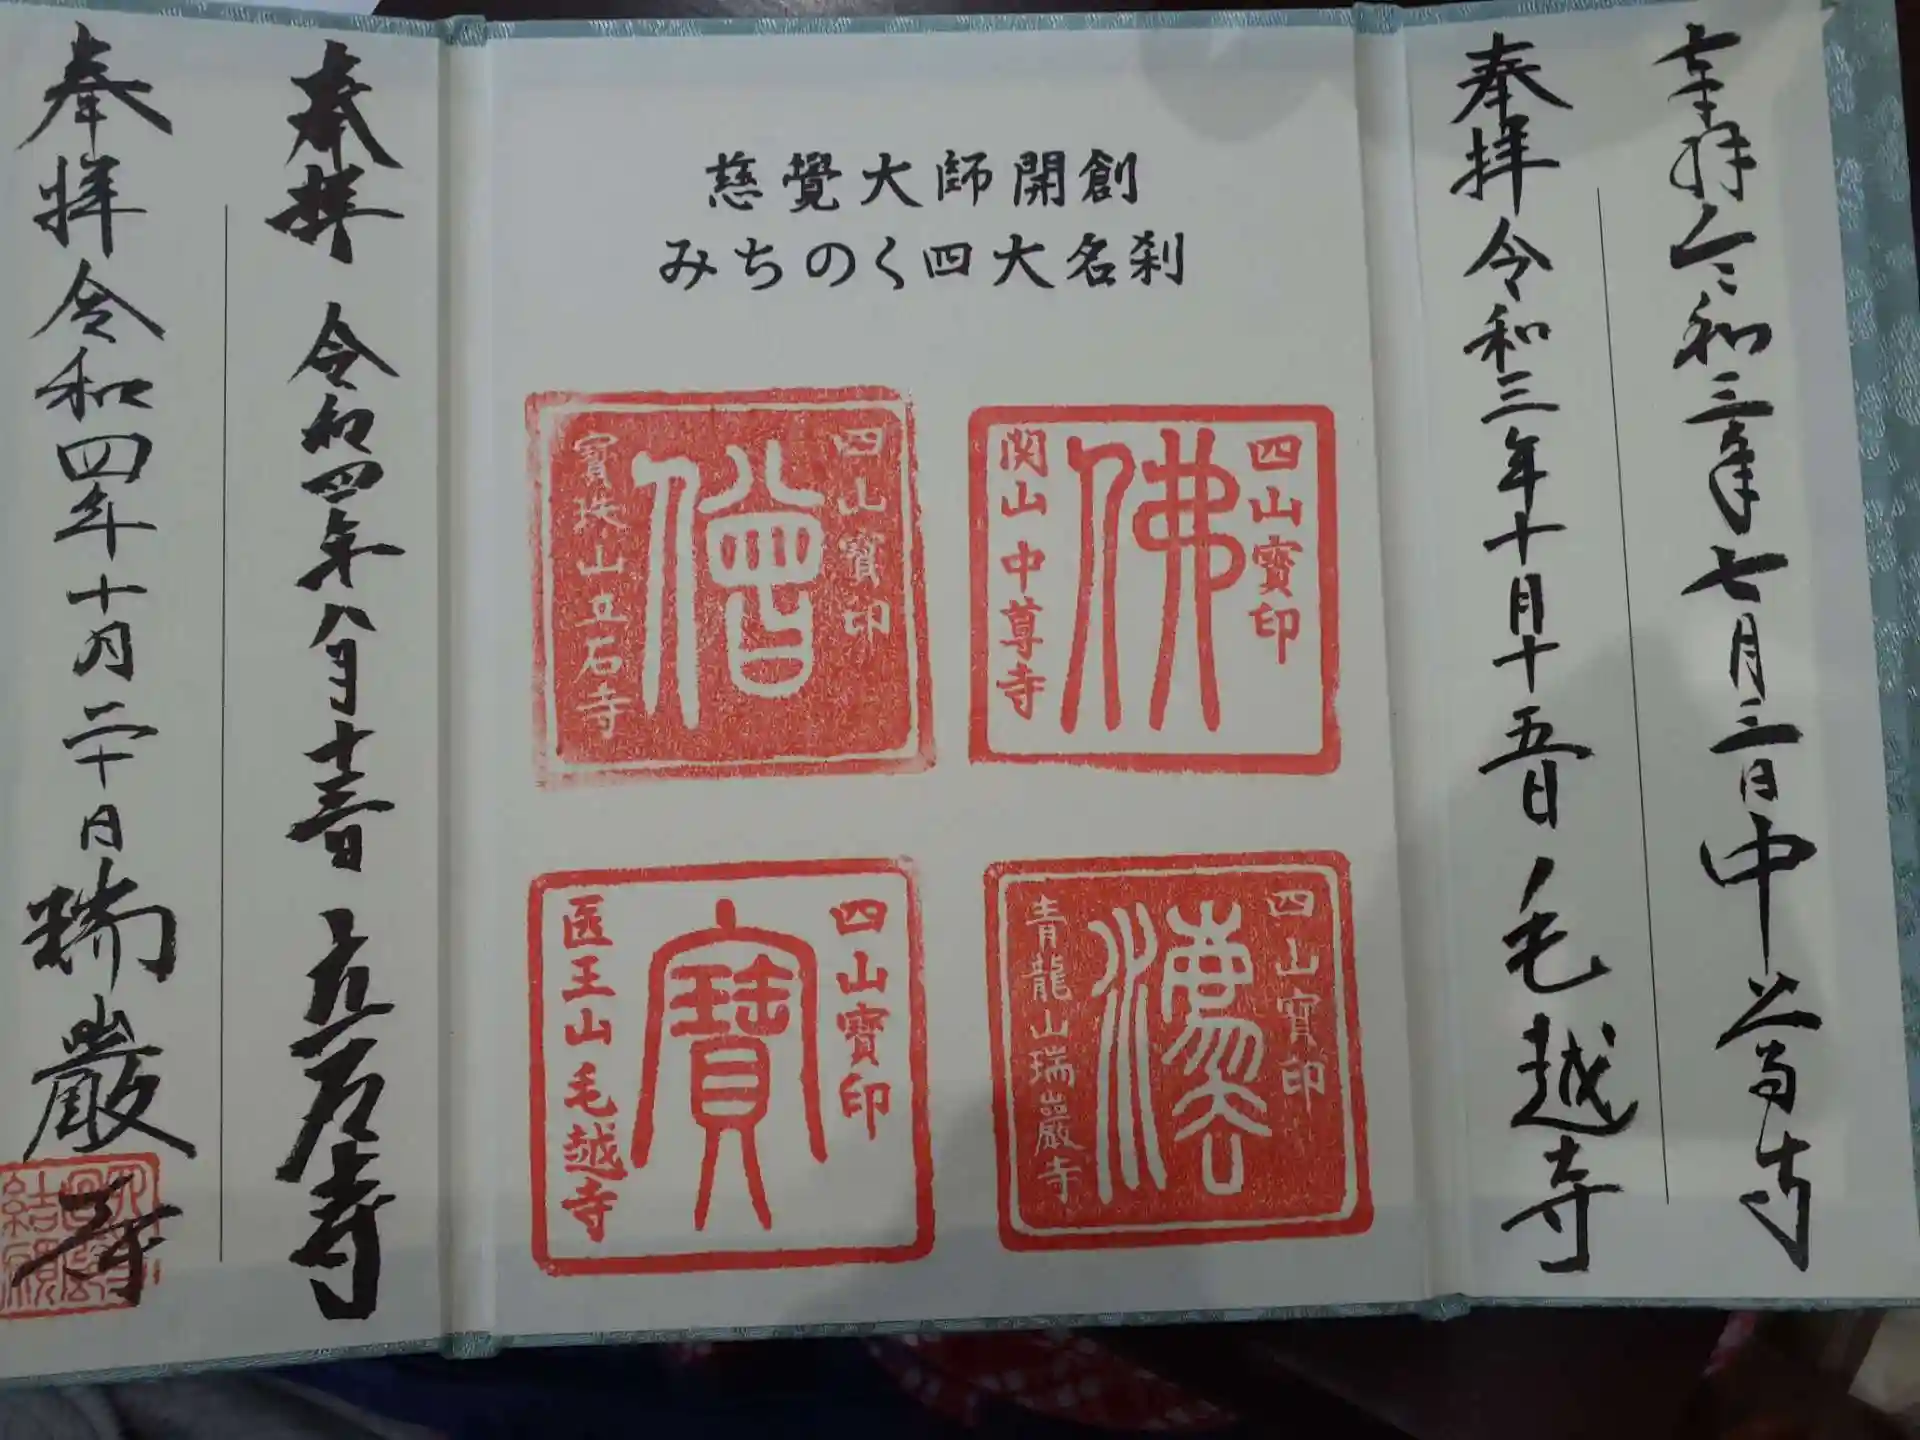 奉拝 令和三年七月三日 中尊寺
奉拝 令和三年十月十五日 毛越寺
慈覺大師開創
みちのく四大名刹
四山寶印
佛
関山中尊寺
四山寶印
僧
寳珠山立石寺
四山寶印
法
青龍山瑞巖寺
四山寶印
寶
医王山毛越寺
奉拝 令和四年八月十三日 立石寺
奉拝 令和四年十月二十日 瑞巖寺